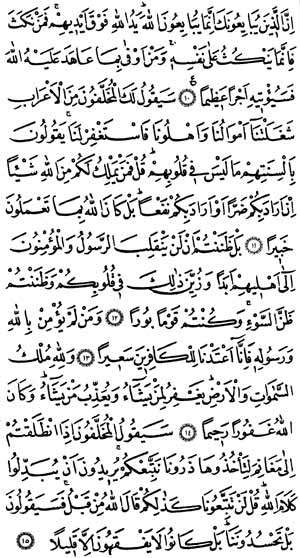 اِنَّ الَّذِيْنَ يُبَايِعُوْنَكَ اِنَّمَا يُبَايِعُوْنَ اللّٰهَ ؕ يَدُ اللّٰهِ فَوْقَ اَيْدِيْهِمْ ۚ فَمَنْ نَّكَثَ
فَاِنَّمَا يَنْكُثُ عَلٰى نَفْسِهٖ ۚ وَمَنْ اَوْفٰى بِمَا عٰهَدَ عَلَيْهُ اللّٰهَ
فَسَيُؤْتِيْهِ اَجْرًا عَظِيْمًا ۝١٠ سَيَقُوْلُ لَكَ الْمُخَلَّفُوْنَ مِنَ الْاَعْرَابِ
شَغَلَتْنَاۤ اَمْوَالُنَا وَاَهْلُوْنَا فَاسْتَغْفِرْ لَنَا ۚ يَقُوْلُوْنَ
بِاَلْسِنَتِهِمْ مَّا لَيْسَ فِيْ قُلُوْبِهِمْ ؕ قُلْ فَمَنْ يَّمْلِكُ لَكُمْ مِّنَ اللّٰهِ شَيْـًٔا
اِنْ اَرَادَ بِكُمْ ضَرًّا اَوْ اَرَادَ بِكُمْ نَفْعًا ؕ بَلْ كَانَ اللّٰهُ بِمَا تَعْمَلُوْنَ
خَبِيْرًا ۝١١ بَلْ ظَنَنْتُمْ اَنْ لَّنْ يَّنْقَلِبَ الرَّسُوْلُ وَالْمُؤْمِنُوْنَ
اِلٰۤى اَهْلِيْهِمْ اَبَدًا وَّزُيِّنَ ذٰلِكَ فِيْ قُلُوْبِكُمْ وَظَنَنْتُمْ
ظَنَّ السَّوْءِ ۖ وَكُنْتُمْ قَوْمًۢا بُوْرًا ۝١٢ وَمَنْ لَّمْ يُؤْمِنْۢ بِاللّٰهِ
وَرَسُوْلِهٖ فَاِنَّاۤ اَعْتَدْنَا لِلْكٰفِرِيْنَ سَعِيْرًا ۝١٣ وَلِلّٰهِ مُلْكُ
السَّمٰوٰتِ وَالْاَرْضِ ؕ يَغْفِرُ لِمَنْ يَّشَآءُ وَيُعَذِّبُ مَنْ يَّشَآءُ ؕ وَكَانَ
اللّٰهُ غَفُوْرًا رَّحِيْمًا ۝١٤ سَيَقُوْلُ الْمُخَلَّفُوْنَ اِذَا انْطَلَقْتُمْ
اِلٰى مَغَانِمَ لِتَاْخُذُوْهَا ذَرُوْنَا نَتَّبِعْكُمْ ۚ يُرِيْدُوْنَ اَنْ يُّبَدِّلُوْا
كَلٰمَ اللّٰهِ ؕ قُلْ لَّنْ تَتَّبِعُوْنَا كَذٰلِكُمْ قَالَ اللّٰهُ مِنْ قَبْلُ ۚ فَسَيَقُوْلُوْنَ
بَلْ تَحْسُدُوْنَنَا ؕ بَلْ كَانُوْا لَا يَفْقَهُوْنَ اِلَّا قَلِيْلًا ۝١٥